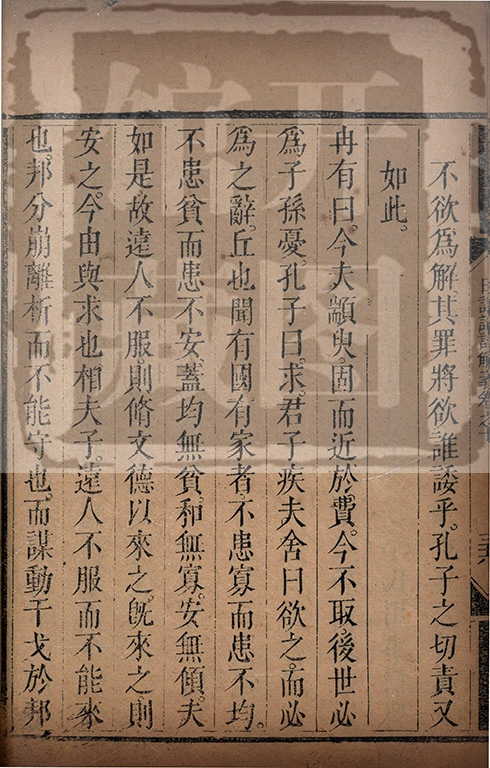 不欲爲解其罪將欲誰諉乎。孔子之切責又
如此。
冉有曰。今夫顓臾。固而近於費。今不取。後世必
爲子孫憂。孔子曰。求。君子疾夫舍曰欲之。而必
爲之辭。丘也聞有國有家者。不患寡而患不均。
不患貧而患不安。蓋均無貧。和無寡。安無傾。夫
如是。故遠人不服。則脩文德以來之。旣來之。則
安之。今由與求也。相夫子。遠人不服而不能來
也。邦分崩離析而不能守也。而謀動干戈於邦